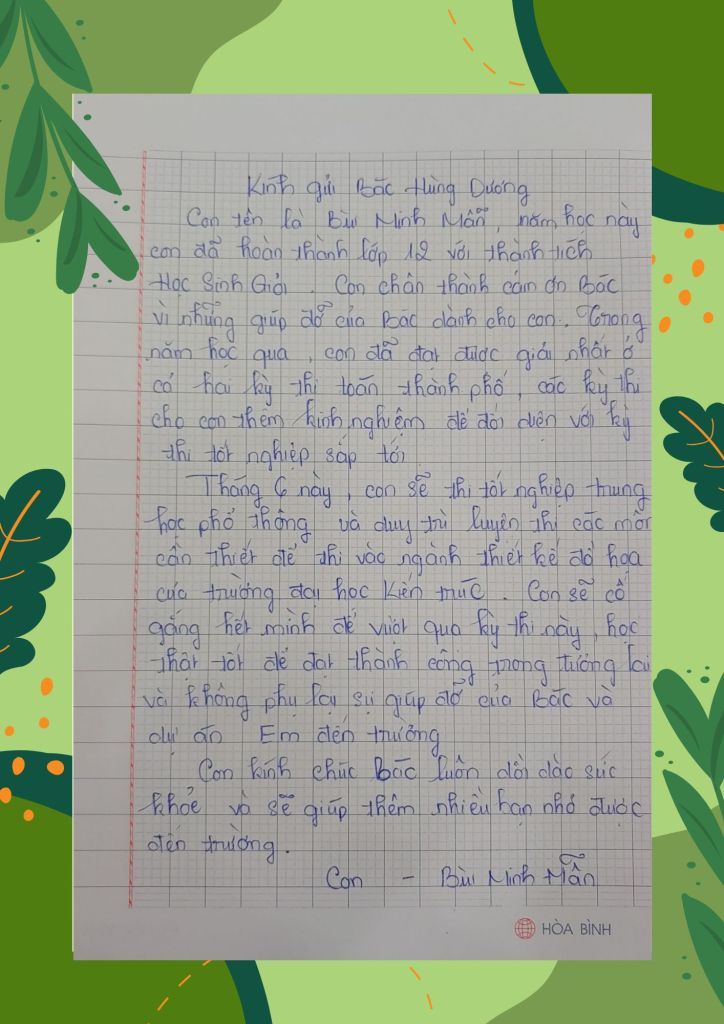 Kính gửi Bác Hùng Dương
Con tên là Bùi Minh Mẫn, năm học này
con đã hoàn thành lớp 12 với thành tích
Học Sinh Giỏi. Con chân thành cảm ơn Bác
vì những giúp đỡ của Bác dành cho con. Trong
năm học qua, con đã đạt được giải nhất ở
cả hai kỳ thi toán thành phố, các kỳ thi
cho con thêm kinh nghiệm để đối diện với kỳ
thi tốt nghiệp sắp tới
Tháng 6 này, con sẽ thi tốt nghiệp trung
học phổ thông và duy trì luyện thi các môn
cần thiết để thi vào ngành thiết kế đồ họa
của trường đại học Kiến trúc. Con sẽ cố
gắng hết mình để vượt qua kỳ thi này, học
thật tốt để đạt thành công trong tương lai
và không phụ lại sự giúp đỡ của Bác và
dự án Em đến trường
Con kính chúc Bác luôn dồi dào sức
khỏe và sẽ giúp thêm nhiều bạn nhỏ được
đến trường.
Con - Bùi Minh Mẫn
HÒA BÌNH